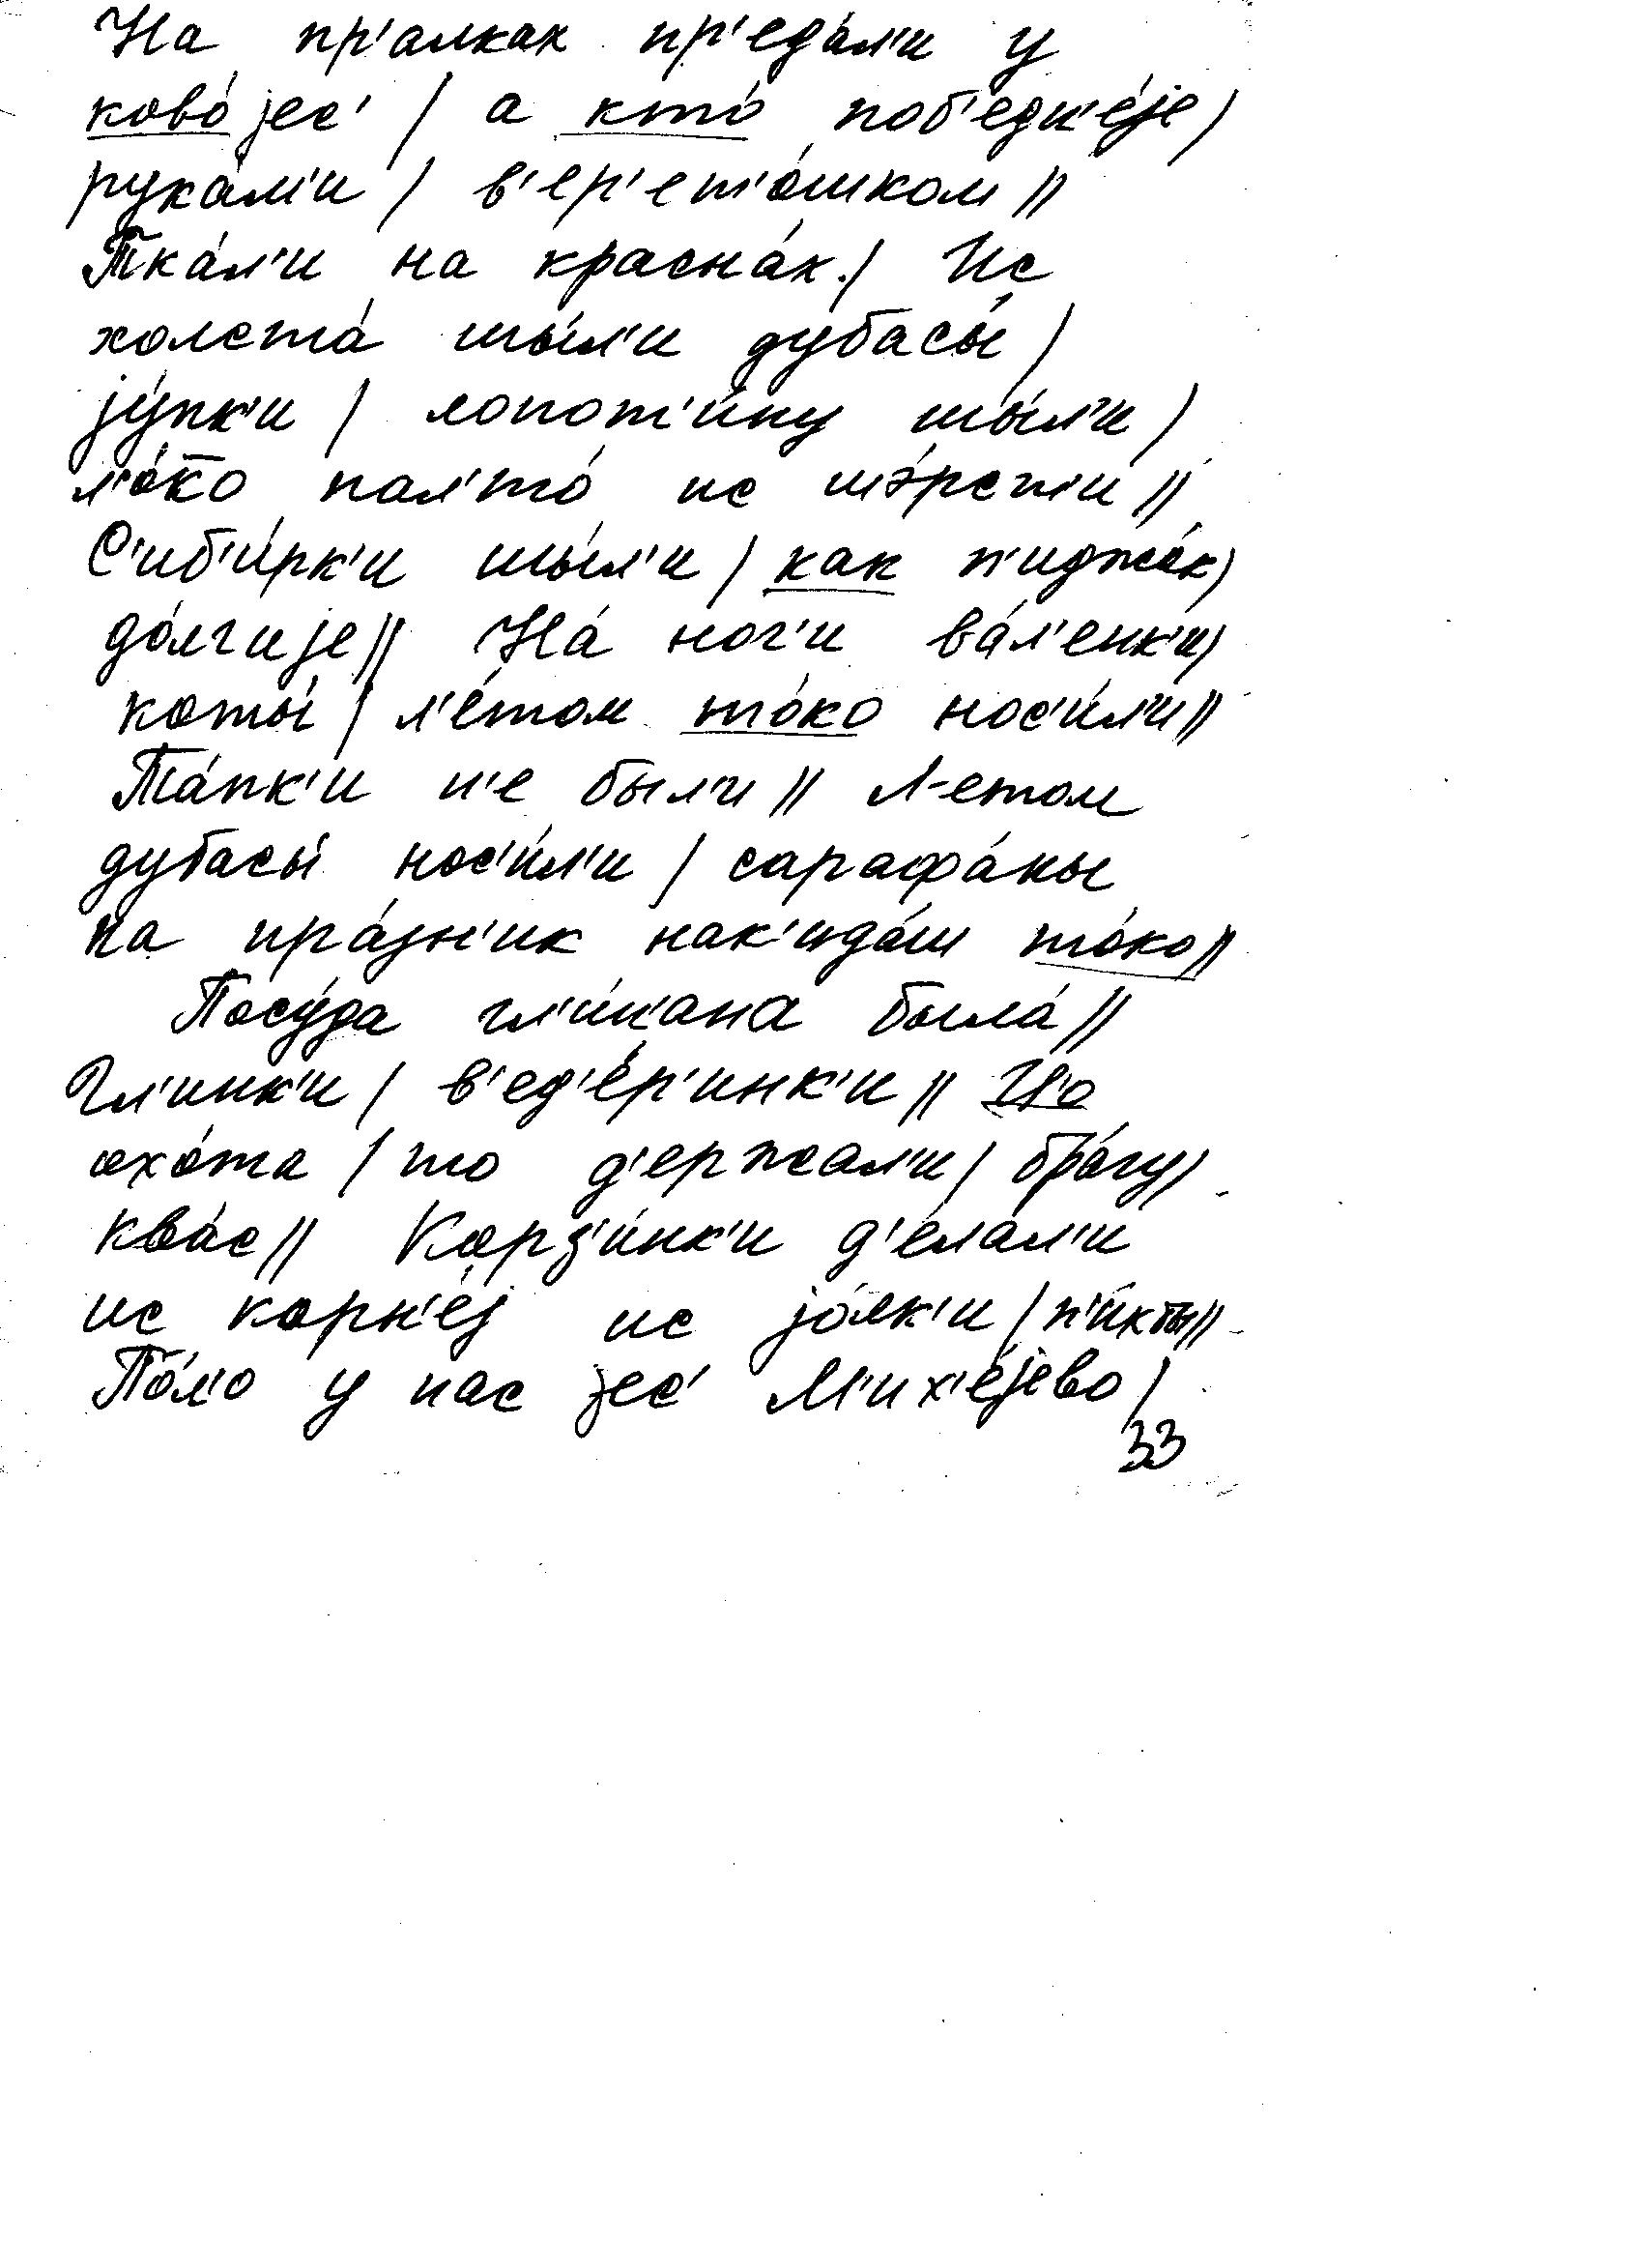 На пр'алках пр'еда́л'и у
ково́ јес' / а кто́ поб'едн'е́је /
рука́м'и / в'ер'ет'о́шком //
Тка́л'и на красна́х. / Ис
холста́ шы́л'и дубасы́ /
јупк'и / лопот'и́ну шы́л'и /
л'о́хко пал'то́ ис шэ́рст'и //
С'иб'и́рк'и шы́л'и / как п'иджа́к /
до́лгије // На́ ног'и ва́л'енк'и /
коты́ / л'е́том то́ко нос'и́л'и //
Та́пк'и н'е был'и // Л'етом
дубасы́ нос'и́л'и / сарафа́ны
на пра́зн'ик нак'ида́ш то́ко //
Посу́да гл'и́н'ана была́ //
Гл'инк'и / в'ед'е́р'инк'и //
охо́та / то д'ержал'и / бра́гу /
ква́с // Корз'и́нк'и д'е́лал'и
ис корн'е́ј ис јо́лк'и / п'и́хты //
По́л'о у нас јес' М'их'е́јево /
33